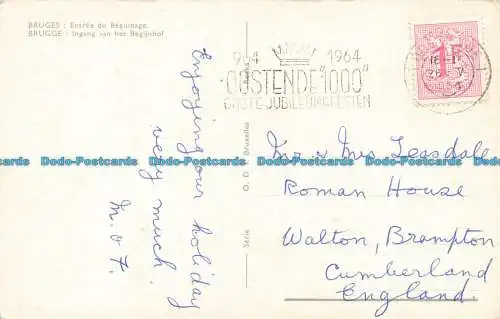 BRUGES : Entrée du Béguinage.
BRUGGE : Ingang van het Begijnhof
964 1964
OOSTENDE "1000"
GROTE JUBILEUMFEESTEN
1F
Enjoying our holiday
very much.
M. & F.
Série
Bruxelles
Mr & Mrs Teasdale
Roman House
Walton, Brampton
Cumberland
England.
Dodo-Postcards Dodo-Postcards Dodo-Postcards Dodo-Postcards Dodo-Postcards
Dodo-Postcards Dodo-Postcards Dodo-Postcards Dodo-Postcards Dodo-Postcards